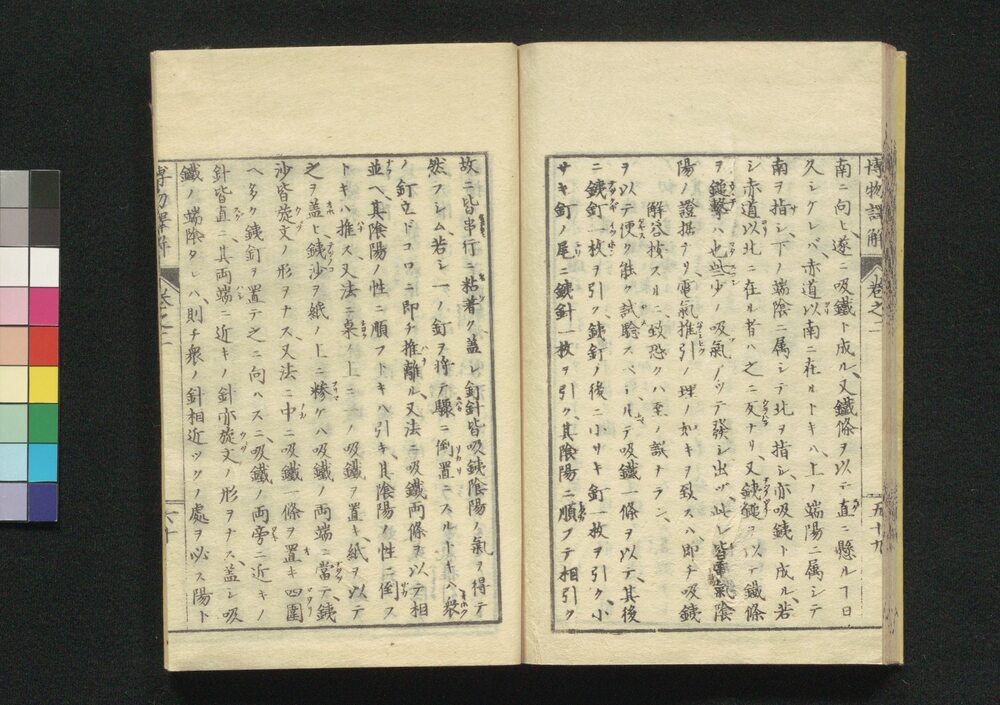 博物譯解 巻之二 五十九
南ニ向ヒ遂ニ吸鐵ト成ル又鐵條ヲ以テ直ニ懸ルコト日
久シケレバ赤道以南ニ在ルトキハ上ノ端陽ニ属シテ
南ヲ指シ下ノ端陰ニ属シテ北ヲ指シ亦吸鐵ト成ル若
シ赤道以北ニ在ル者ハ之ニ反ナリ又鐵鎚ヲ以テ鐵條
ヲ鎚撃ハ也些少ノ吸氣アツテ發シ出ツ此レ皆電氣陰
陽ノ證据ナリ電氣推引ノ理ノ如キヲ致スハ即チ吸鐵
ヲ以テ便ク能ク試驗スベシ
吸鐵一條ヲ以テ其後
ニ鐵釘一枚ヲ引ク鐵釘ノ後ニ小サキ釘一枚ヲ引ク小
サキ釘ノ尾ニ鐵針一枚ヲ引ク其陰陽ニ順フテ相引ク
故ニ皆串行ニ粘著ク蓋シ釘針皆吸鐵陰陽ノ氣ヲ得テ
然フシム若シ一ノ釘ヲ将テ驟ニ倒置ニスルトキハ衆
ノ釘立ドコロニ即チ推離ル又法ニ吸鐵両條ヲ以テ相
並ヘ其陰陽ノ性ニ順フトキハ引キ其陰陽ノ性ニ倒ス
トキハ推ス又法ニ桌ノ上ニ一ノ吸鐵ヲ置キ紙ヲ以テ
之ヲ蓋ヒ鐵沙ヲ紙ノ上ニ糝ケハ吸鐵ノ両端ニ當テ鐵
沙皆旋文ノ形ヲナス又法ニ中ニ吸鐵一條ヲ置キ四圍
ヘ多ク鐵釘ヲ置テ之ニ向ハスニ吸鐵ノ両旁ニ近キノ
針皆直ニ其両端ニ近キノ針亦旋文ノ形ヲナス蓋シ吸
鐵ノ端陰タレハ則チ衆ノ針相近ツクノ處ヲ必ス陽ト
巻之二 六十